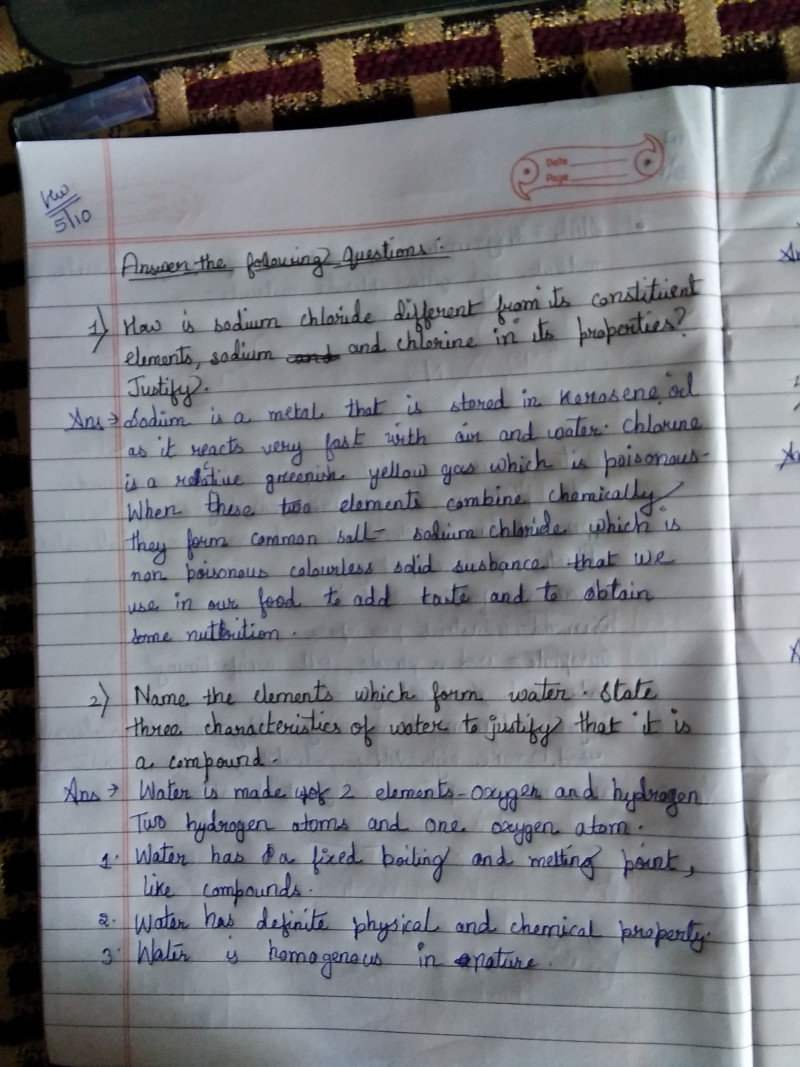 HW
5/10
Date
Page
Answer the following Questions:
1) How is sodium chloride different from its constituent
elements, sodium and chlorine in its properties?
Justify.
Ans → Sodium is a metal that is stored in Kerosene oil
as it reacts very fast with air and water. Chlorine
is a greenish yellow gas which is poisonous.
When these two elements combine chemically
they form common salt- sodium chloride which is
non poisonous colourless solid susbance that we
use in our food to add taste and to obtain
some nutrition.
2) Name the elements which form water. State
three characteristics of water to justify that it is
a compound.
Ans → Water is made of 2 elements-oxygen and hydrogen
Two hydrogen atoms and one oxygen atom.
1. Water has a fixed boiling and melting point,
like compounds.
2. Water has definite physical and chemical property.
3. Water is homogenous in nature.